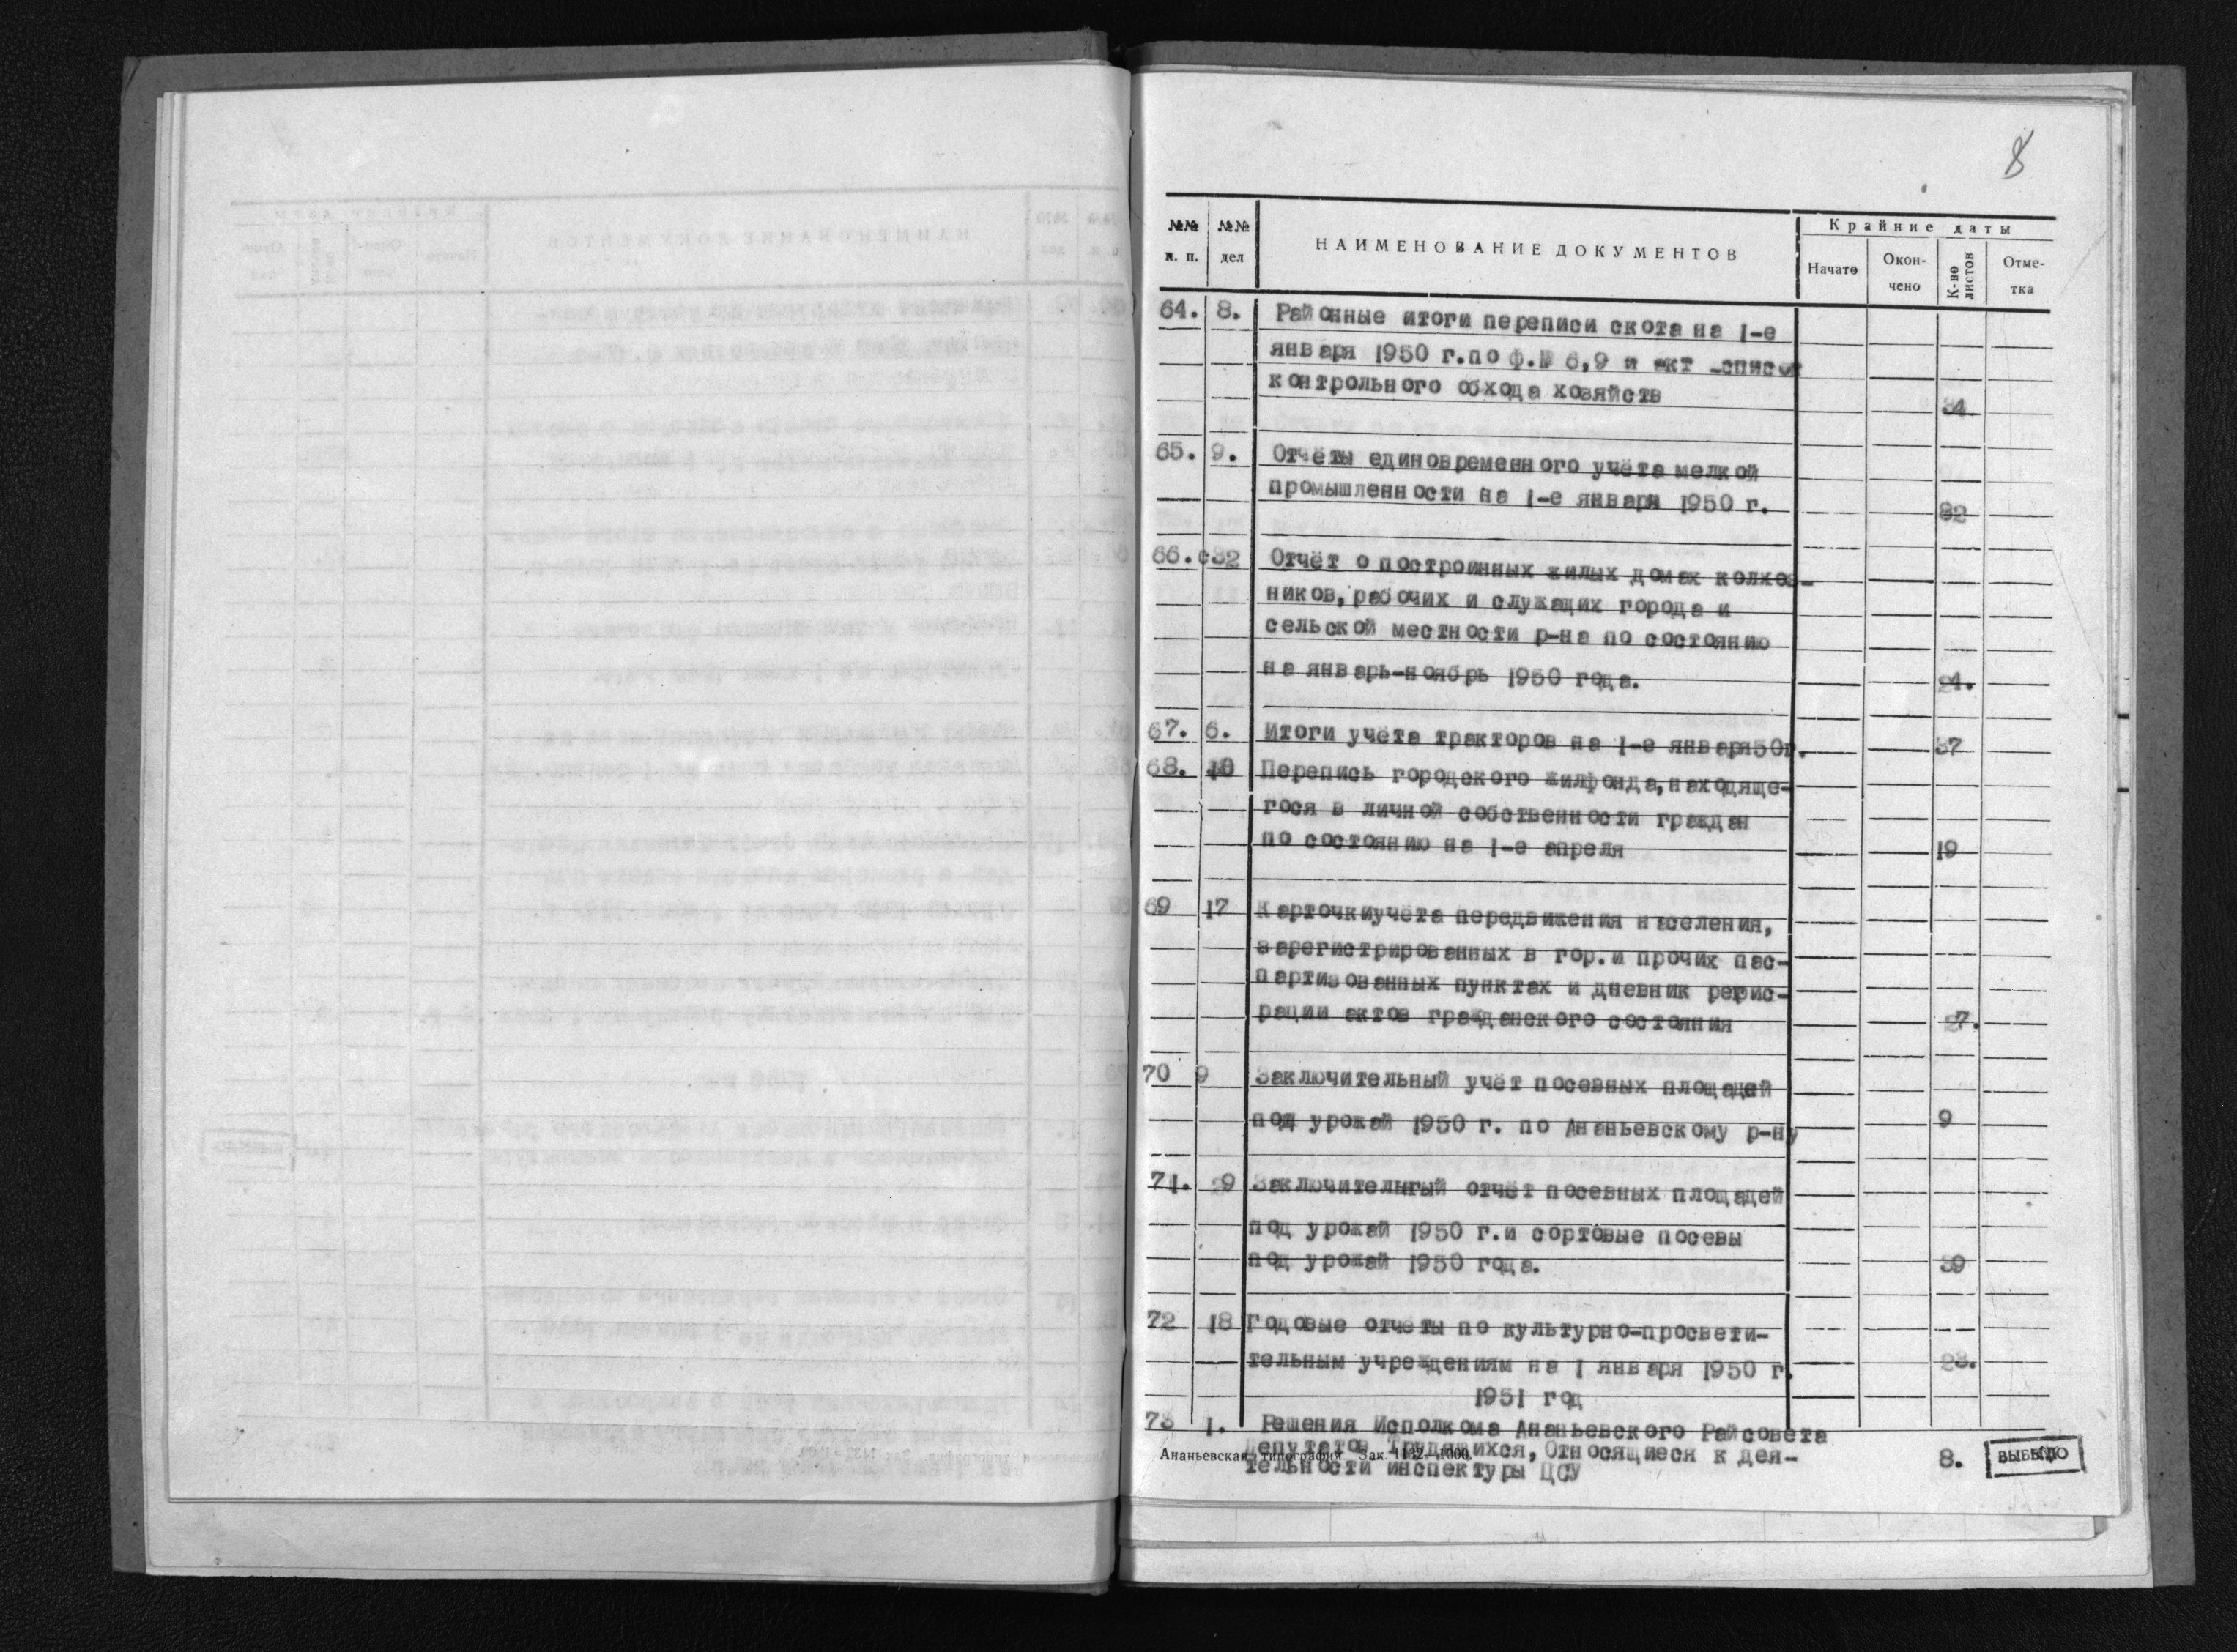 8
№№ п. п.
№№ дел
НАИМЕНОВАНИЕ ДОКУМЕНТОВ
Крайние даты
Начато
Окончено
К-во листов
Отметка
64. 8. Районные итоги переписи скота на 1-е
января 1950 г.по ф.№ 6,9 и акт -список
контрольного обхода хозяйств 34
65. 9. Отчёты единовременного учёта мелкой
промышленности на 1-е января 1950 г. 82
66. с32 Отчёт о построинных жилых домах колхоз-
ников, рабочих и служащих города и
сельской местности р-на по состоянию
на январь-ноябрь 1950 года. 24.
67. 6. Итоги учёта тракторов на 1-е января50г. 37
68. 10 Перепись городского жилфонда, находяще-
гося в личной собственности граждан
по состоянию на 1-е апреля 19
69 17 Карточкиучёта передвижения населения,
зарегистрированных в гор. и прочих пас-
партизованных пунктах и дневник регис-
рации актов гражданского состояния 27.
70 9 Заключительный учёт посевных площадей
под урожай 1950 г. по Ананьевскому р-ну 9
71. 29 Заключительный отчёт посевных площадей
под урожай 1950 г.и сортовые посевы
под урожай 1950 года. 39
72 18 Годовые отчёты по культурно-просвети-
тельным учреждениям на 1 января 1950 г. 28.
1951 год
73 1. Решения Исполкома Ананьевского Райсовета
Депутатов Трудящихся, Относящиеся к дея-
Ананьевская типография Зак. 1162—1000
тельности инспектуры ЦСУ 8. ВЫБЫЛО